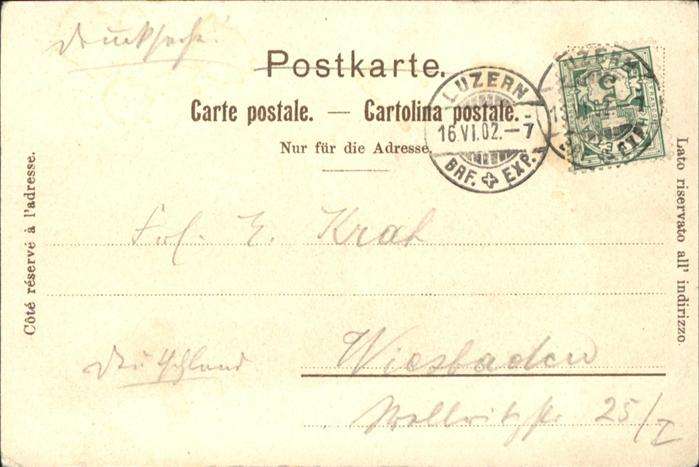 Drucksache!
Postkarte.
Carte postale. — Cartolina postale.
Nur für die Adresse.
LUZERN
16.VI.02.–7
BRF. EXP.
LUZERN
Côté réservé à l'adresse.
Lato riservato all' indirizzo.
Frl. E.
Deutschland
Wiesbaden
25/I